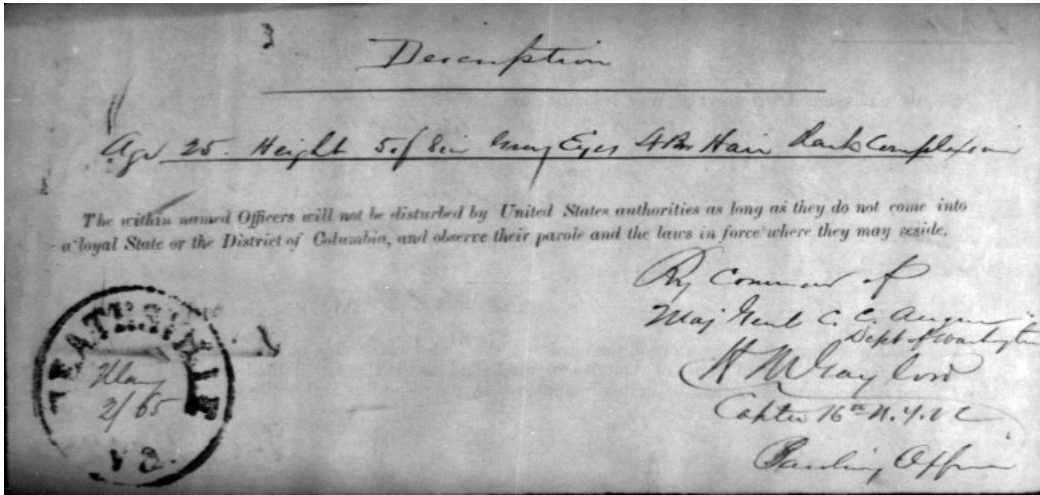 Description
Age 25. Height 5.f 8in Gray Eyes Hair Dark Complexion
The within named Officers will not be disturbed by United States authorities as long as they do not come into
a loyal State or the District of Columbia, and observe their parole and the laws in force where they may reside.
By Command of
Maj Genl C. C. Augur
Dept of Washington
H M Gaylord
Capt 16th N.Y.V.C
Paroling Officer
VA.
May
2/65